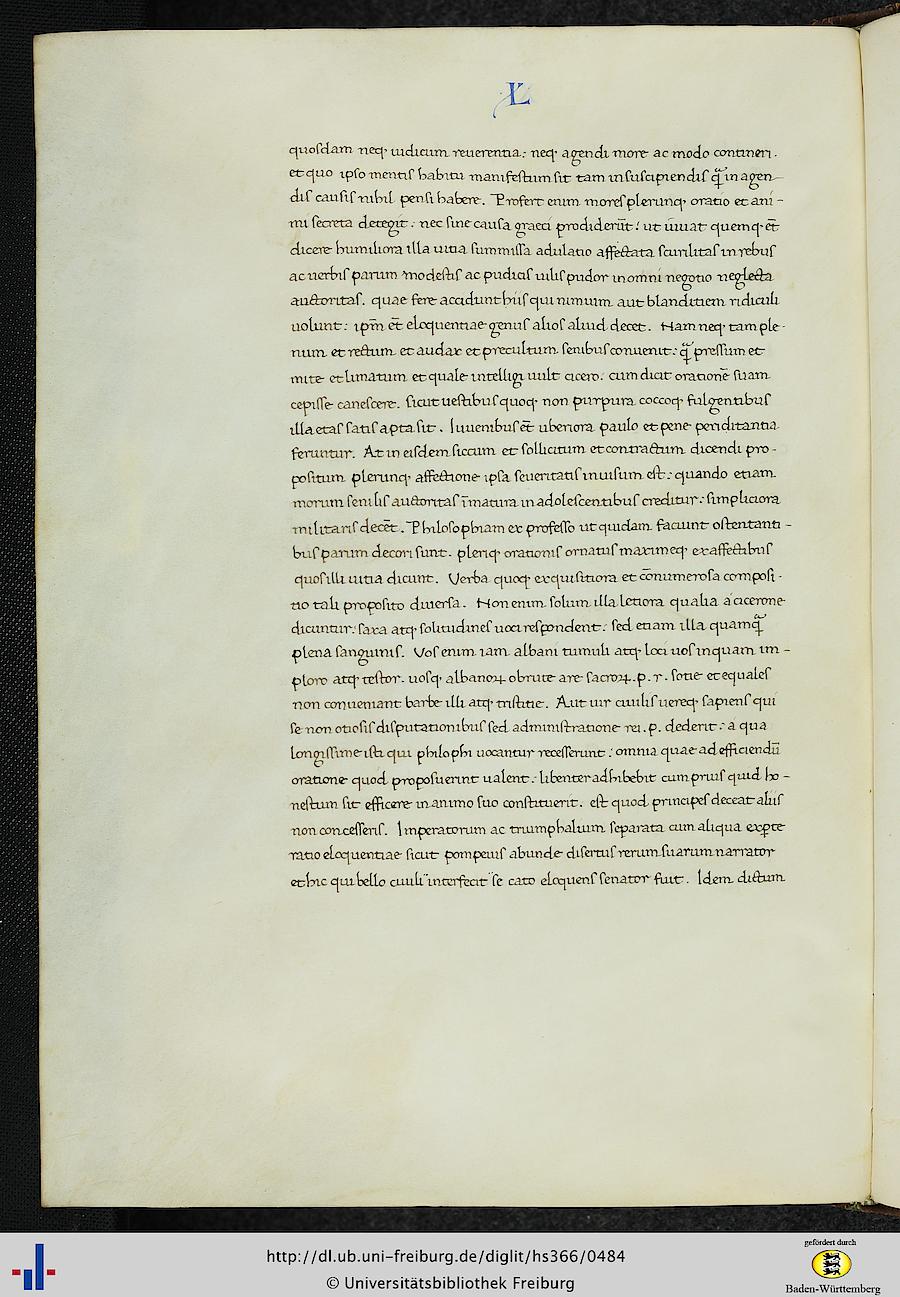 L
quosdam neq; iudicum reuerentia: neq; agendi more ac modo contineri.
et quo ipso mentis habitu manifestum sit tam in suscipiendis q̃ in agen
dis causis nihil pensi habere. Profert enim mores plerunq; oratio et ani-
mi secreta detegit: nec sine causa graeci prodiderūt: ut uiuat quemq; ēt
dicere humiliora illa uitia summissa adulatio affectata scurilitas in rebus
ac uerbis parum modestis ac pudicis uilis pudor in omni negotio neglecta
auctoritas. quae fere accidunt hiis qui nimium aut blanditiem ridiculi
uolunt: ipm̄ ēt eloquentiae genus alios aliud decet. Nam neq; tam ple-
num et rectum et audax et precultum senibus conuenit: q̃ pressum et
mite et limatum et quale intelligi uult cicero: cum dicit orationē suam
cepisse canescere. sicut uestibus quoq; non purpura coccoq; fulgentibus
illa etas satis apta sit. Iuuenibus ēt uberiora paulo et pene periclitantia
feruntur. At in eisdem siccum et sollicitum et contractum dicendi pro-
positum plerunq; affectione ipsa seueritatis inuisum est: quando etiam
morum senilis auctoritas īmatura in adolescentibus creditur: simpliciora
militaris decēt. Philosophiam ex professo ut quidam faciunt ostentanti-
bus parum decori sunt. pleriq; orationis ornatus maximeq; ex affectibus
quos illi uitia dicunt. Verba quoq; exquisitiora et cōnumerosa composi-
tio tali proposito diuersa. Non enim solum illa letiora qualia a cicerone
dicuntur: saxa atq; solitudines uoci respondent: sed etiam illa quamq̃
plena sanguinis. Vos enim iam albani tumuli atq; loci uos inquam im-
ploro atq; testor. uosq; albanoꝝ obrute are sacroꝝ. p. r. sotie et equales
non conueniant barbe illi atq; tristitie. Aut uir ciuilis uereq; sapiens qui
se non otiosis disputationibus sed administratione rei. p. dederit: a qua
longissime isti qui philophi uocantur recesserunt: omnia quae ad efficiendū
oratione quod proposuerint ualent: libenter adhibebit cum prius quid ho-
nestum sit efficere in animo suo constituerit. est quod principes deceat aliis
non concesseris. Imperatorum ac triumphalium separata cum aliqua exp̱te
ratio eloquentiae sicut pompeius abunde disertus rerum suarum narrator
et hic qui bello ciuili "interfecit "se cato eloquens senator fuit. Idem dictum
http://dl.ub.uni-freiburg.de/diglit/hs366/0484
© Universitätsbibliothek Freiburg
gefördert durch
Baden-Württemberg